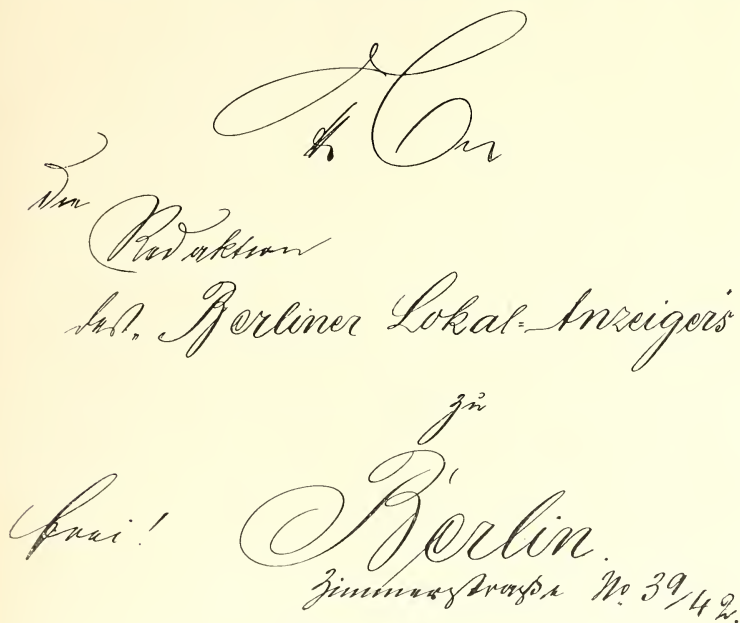 An
die
Redaktion
des. Berliner Lokal-Anzeiger's
zu
frei! Berlin.
Zimmerstraße No 39/42.